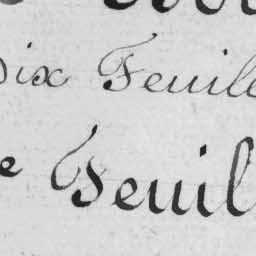 Dix Feuille
e Feuil